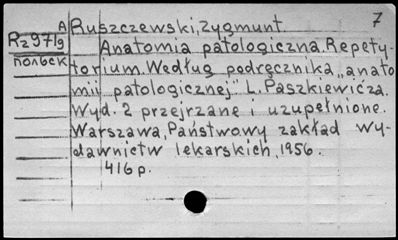 7
A Ruszczewski, Zygmunt.
Rz971g Anatomia patologiczna. Repety-
польск torium. Według podręcznika „anato
mii patologicznej" L. Paszkiewicza.
Wyd. 2 przejrzane i uzupełnione.
Warszawa, Państwowy zakład wy-
dawnictw lekarskich, 1956.
416 p.